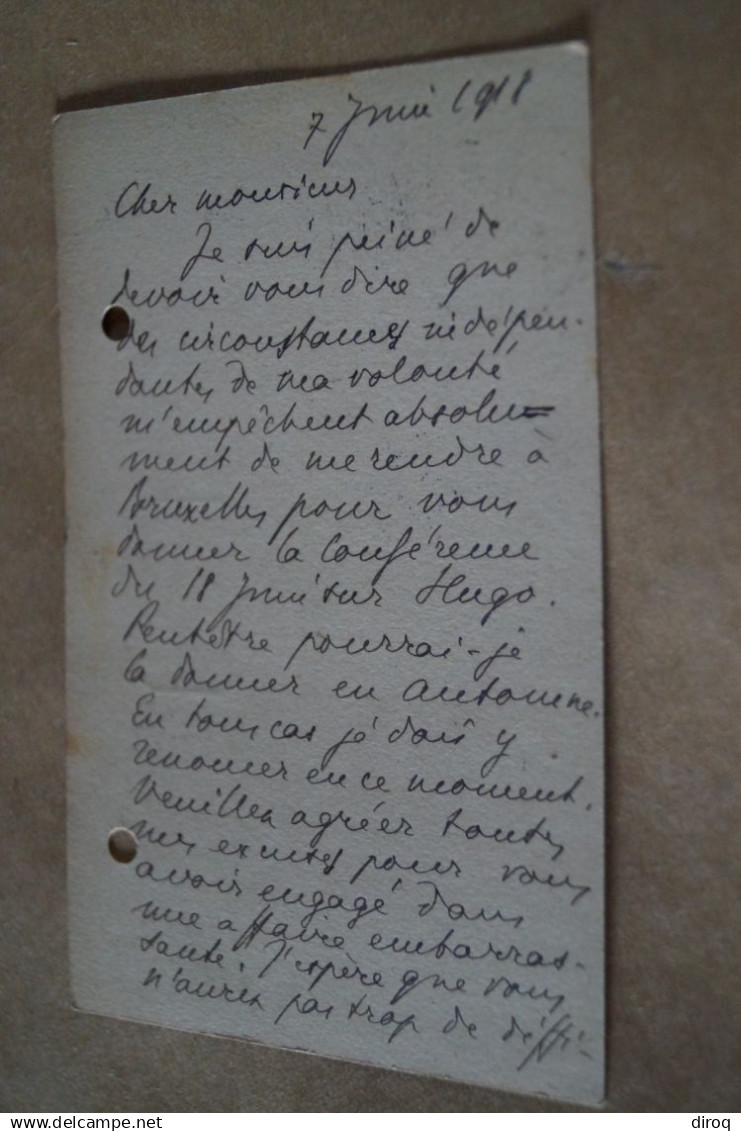 7 Juin 1918
Cher monsieur
Je suis peiné de
devoir vous dire que
des circonstances indépen-
dantes de ma volonté
m'empêchent absolu=
ment de me rendre à
Bruxelles pour vous
donner la Conférence
du 18 Juin sur Hugo.
Peut être pourrai-je
la donner en automne.
En tous cas je dois y
renoncer en ce moment.
Veuillez agréer toutes
mes excuses pour vous
avoir engagé dans
une affaire embarras-
sante. J'espère que vous
n'aurez pas trop de diffi-
diroq